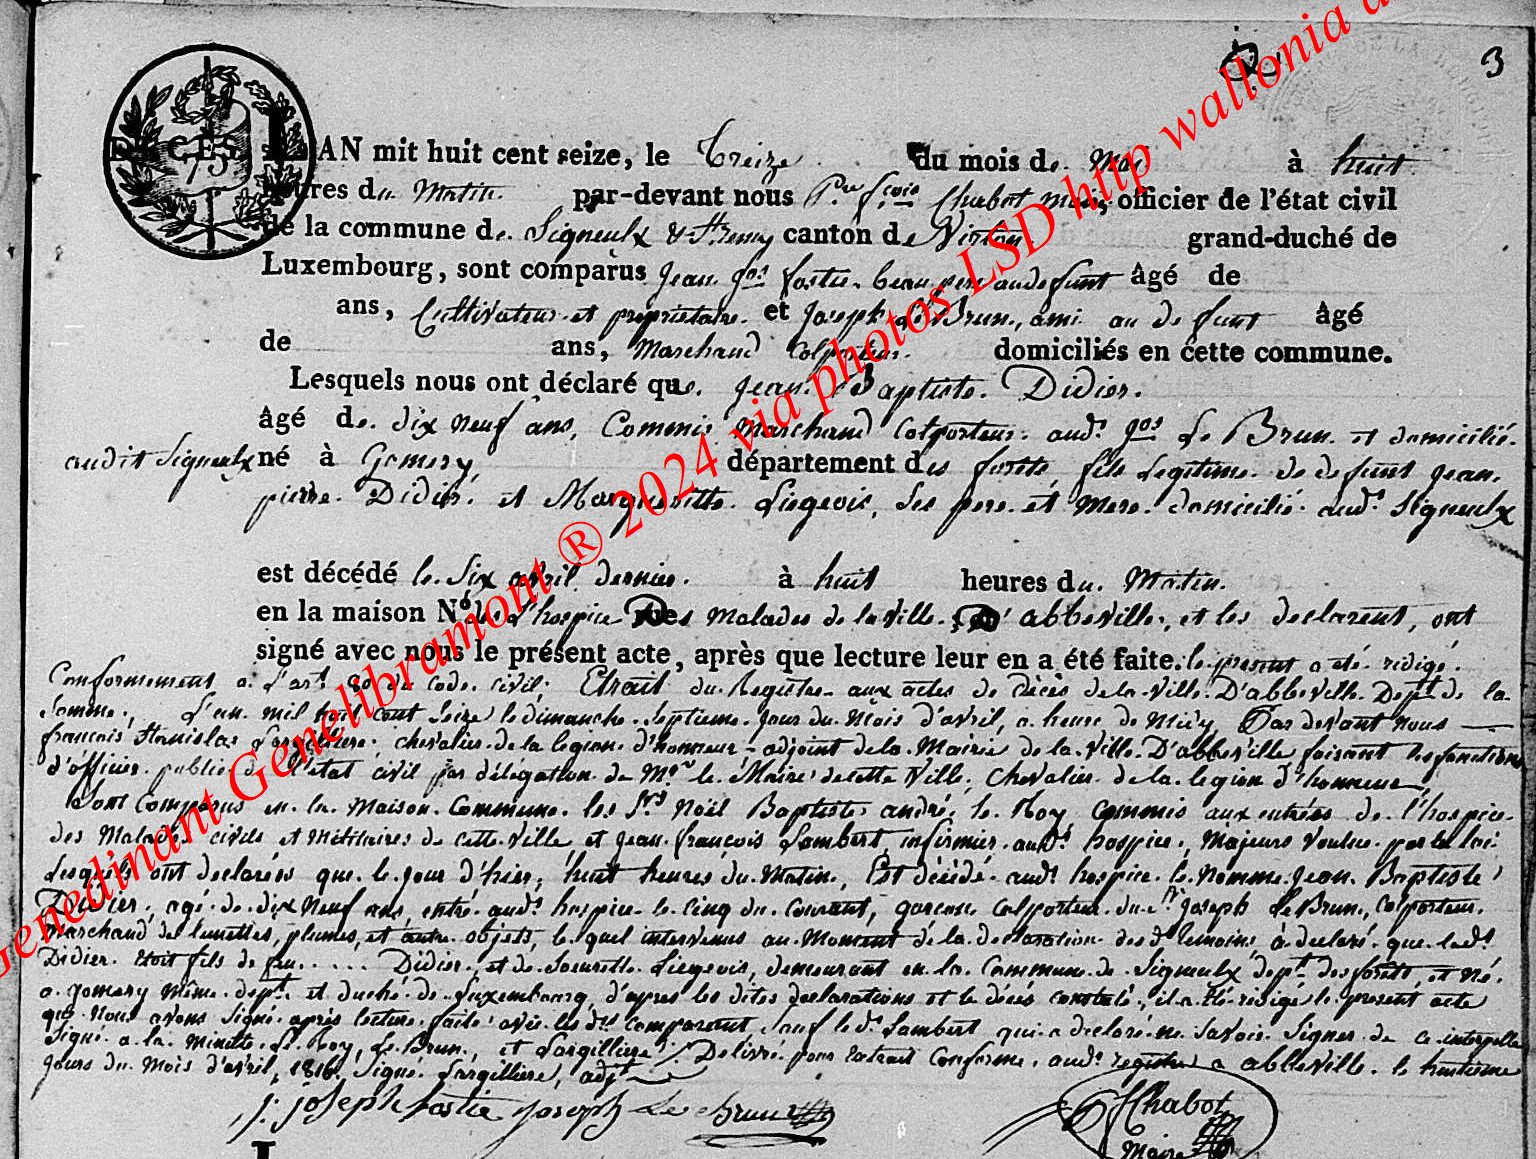 3
L'AN mil huit cent seize, le Treize du mois de Mai à huit
heures du Matin par-devant nous Pre fçois Chabot Maire, officier de l'état civil
de la commune de Signeulx & St remy canton de Virton grand-duché de
Luxembourg, sont comparus Jean Jos fostie beau pere au defunt âgé de
ans, Cultivateur et propriétaire et Joseph Le Brun, ami au defunt âgé
de ans, Marchand Colporteur domiciliés en cette commune.
Lesquels nous ont déclaré que Jean Baptiste Didier.
âgé de dix neuf ans, Commis Marchand Colporteur audt Jos Le Brun et domicilié
audit Signeulx né à Gomery département des forêts fils legitime de defunt Jean
pierre Didier et Margueritte Liegeois, ses pere et mere domicilié audt Signeulx
est décédé le Six avril dernier à huit heures du Matin
en la maison No de l'hospice des Malades de la ville D'abbeville, et les declarent, ont
signé avec nous le présent acte, après que lecture leur en a été faite. le present a été redigé
Conformement a L'art 80 du Code Civil; Etrait du Registre aux actes de décès de la ville D'abbeville Dept de la
Somme, L'an mil huit cent seize le dimanche septieme jour du Mois d'avril, a heure de Midy Par devant nous
françois Stanislas Largilliere, chevalier de la legion d'honneur adjoint de la Mairie de la ville D'abbeville faisant les fonctions
d'officier public de l'état civil par délégation de Mr le Maire de cette Ville, chevalier de la legion d'honneur
Sont Comparus en la Maison Commune les Srs Noël Baptiste andré le Roy, commis aux entrées de l'hospice
des Malades civils et Militaires de cette ville et Jean françois Lambert, infirmier audt hospice, Majeurs voulus par la loi
Lesquels ont declarés que le jour d'hier, huit heures du Matin, Est décédé audt hospice le Nommé Jean Baptiste
Didier, agé de dix Neuf ans, entré audt hospice le cinq du Courant, garcon Colporteur du Sr Joseph Le Brun, Colporteur
Marchand de lunettes, plumes, et autre objets, le quel intervenus au Moment de la declaration des dt temoins a declaré que le dt
Didier étoit fils de feu .... Didier, et de Liegeois, demeurant en la Commune de Signeulx dept des forêts et Né
a gomery même dept et duché de Luxembourg, d'apres les dites declarations et le décés constaté, il a été rédigé le present acte
que Nous avons Signé après lecture faite avec les dts Comparant, Sauf le dt Lambert qui a declaré ne Savoir Signer de ce interpellé
Signé a la minutte Le Roy, Le Brun, et Largilliere. Delivré pour Extrait Conforme, audt registre a abbeville le huitieme
jours du Mois d'avril, 1816, Signé Largilliere, adjt
J. joseph fostie joseph Le Brun
Chabot
Maire
Genedinant Genelibramont ® 2024 via photos LSD http wallonia